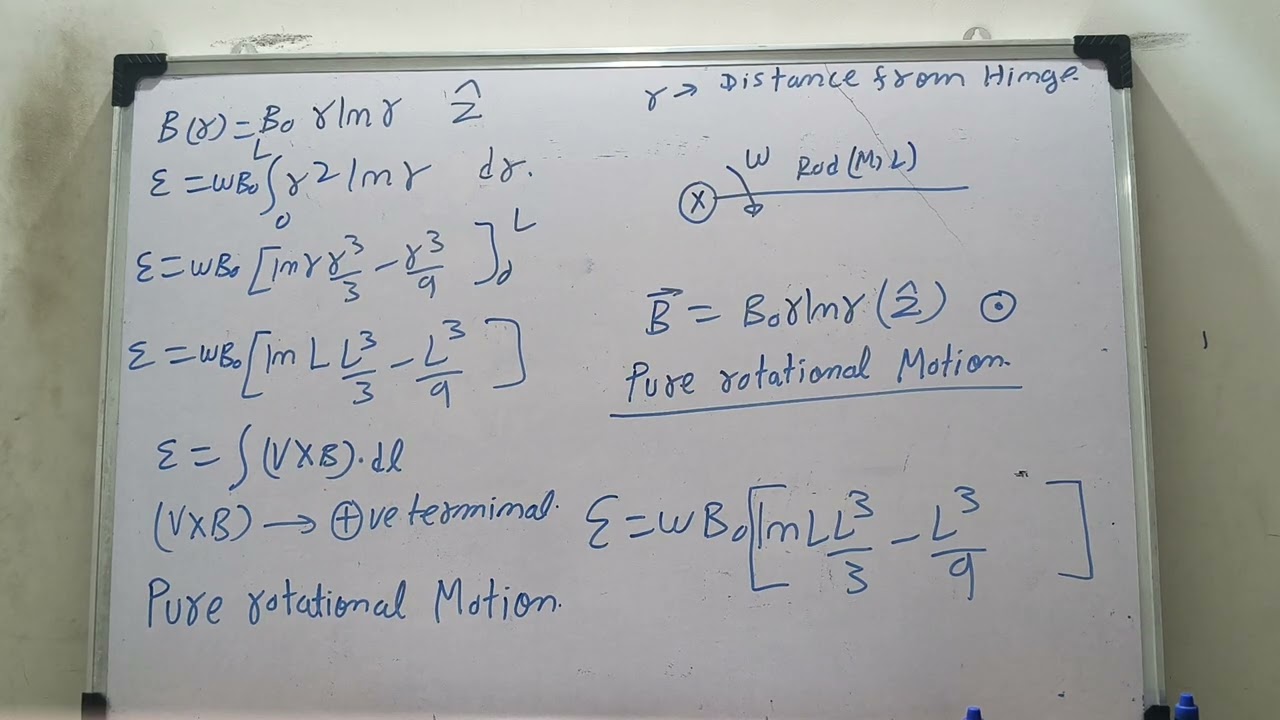 B(r) = B₀ r ln r ẑ
ε = wB₀ ∫₀ᴸ r2 ln r dr.
ε = wB₀ [ln r r³/3 - r³/9]₀ᴸ
ε = wB₀ [ln L L³/3 - L³/9]
ε = ∫(V×B)·dl
(V×B) → ⊕ve terminal.
Pure rotational Motion.
r → Distance from Hinge.
w Rod (M, L)
X
B⃗ = B₀ r ln r (ẑ) ⊙
Pure rotational Motion.
ε = wB₀ [ln L L³/3 - L³/9]